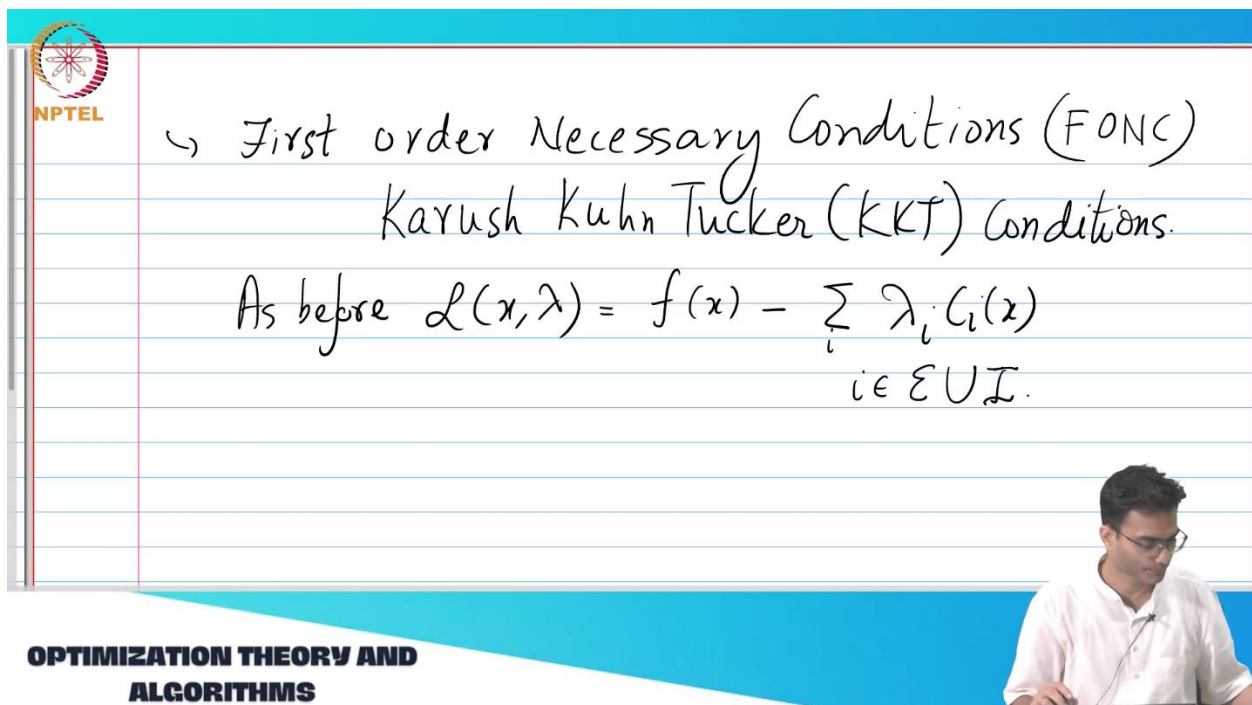 NPTEL
↳ First order Necessary Conditions (FONC)
Karush Kuhn Tucker (KKT) Conditions.
As before ℒ(x, λ) = f(x) − Σ_i λ_i C_i(x)
i ∈ ℰ ∪ I.
OPTIMIZATION THEORY AND
ALGORITHMS